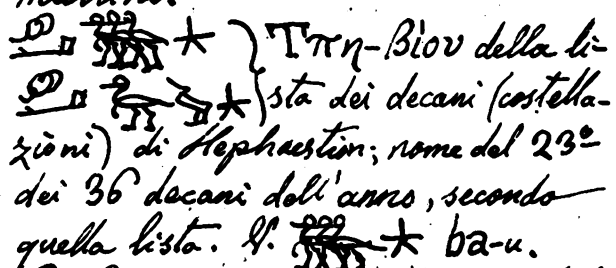 Τπη-Βιου della li-
sta dei decani (costella-
zioni) di Hephaestion; nome del 23º
dei 36 decani dell'anno, secondo
quella lista. V. 𓇼 ba-u.